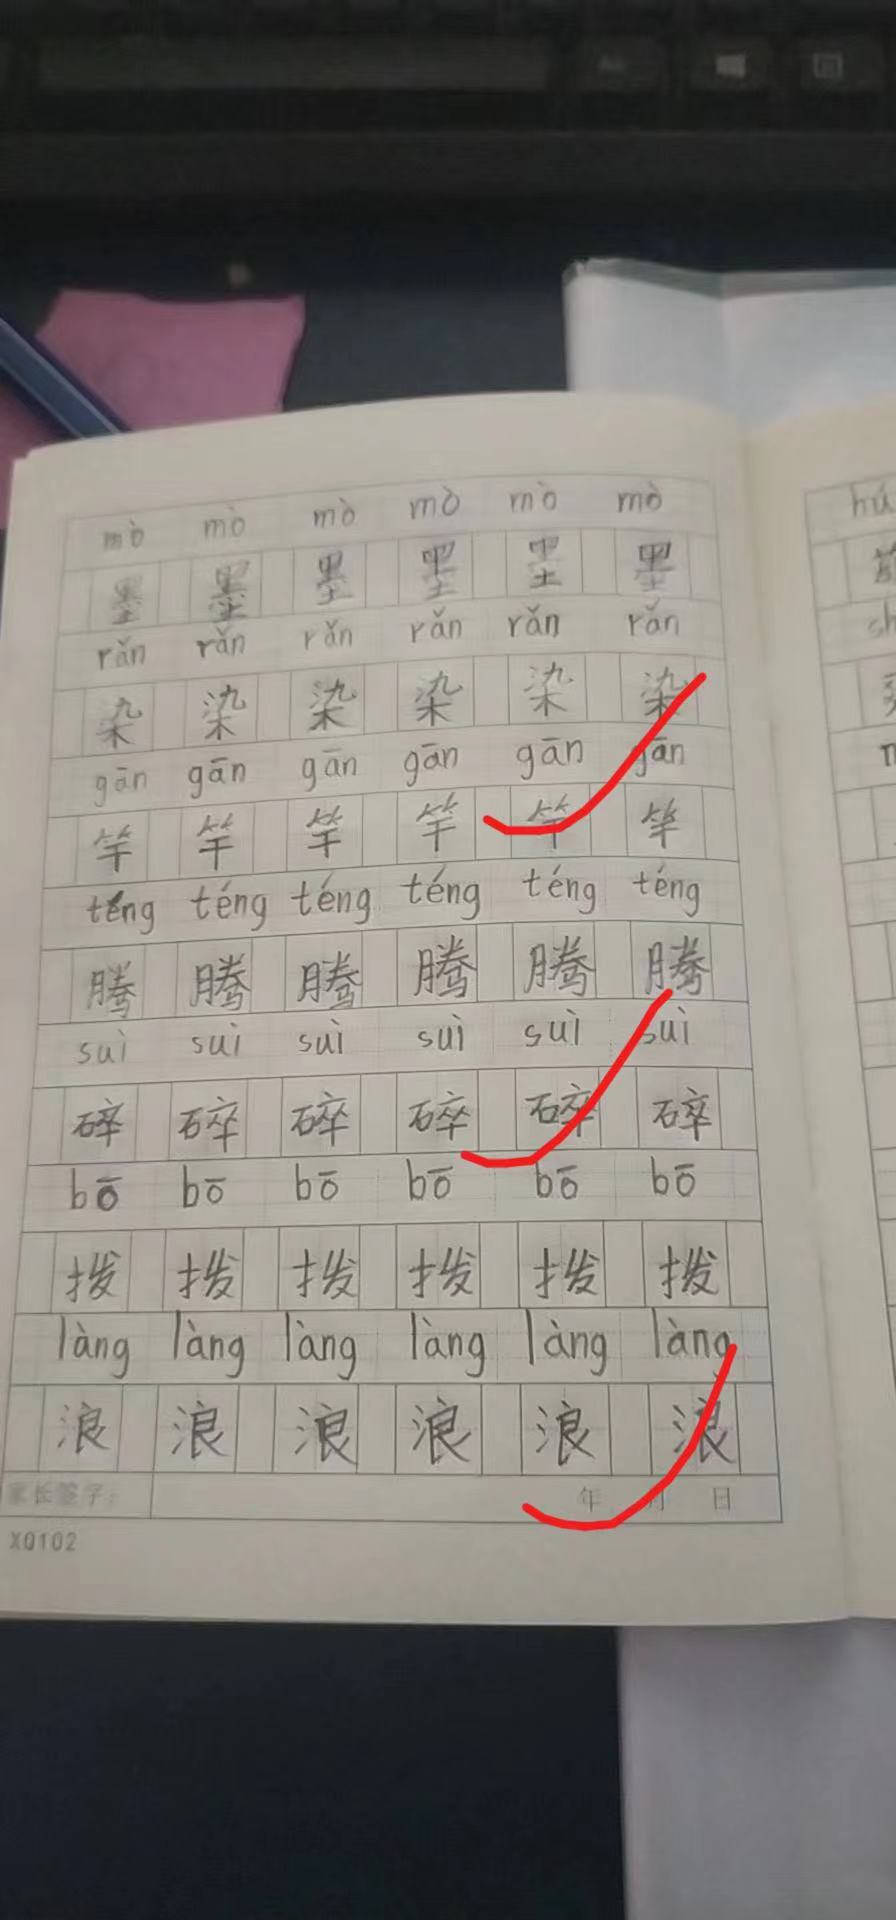 mò mò mò mò mò mò
墨 墨 墨 墨 墨 墨
rǎn rǎn rǎn rǎn rǎn rǎn
染 染 染 染 染 染
gān gān gān gān gān gān
竿 竿 竿 竿 竿 竿
téng téng téng téng téng téng
腾 腾 腾 腾 腾 腾
suì suì suì suì suì suì
碎 碎 碎 碎 碎 碎
bō bō bō bō bō bō
拨 拨 拨 拨 拨 拨
làng làng làng làng làng làng
浪 浪 浪 浪 浪 浪
家长签字: 年 月 日
X0102
hú